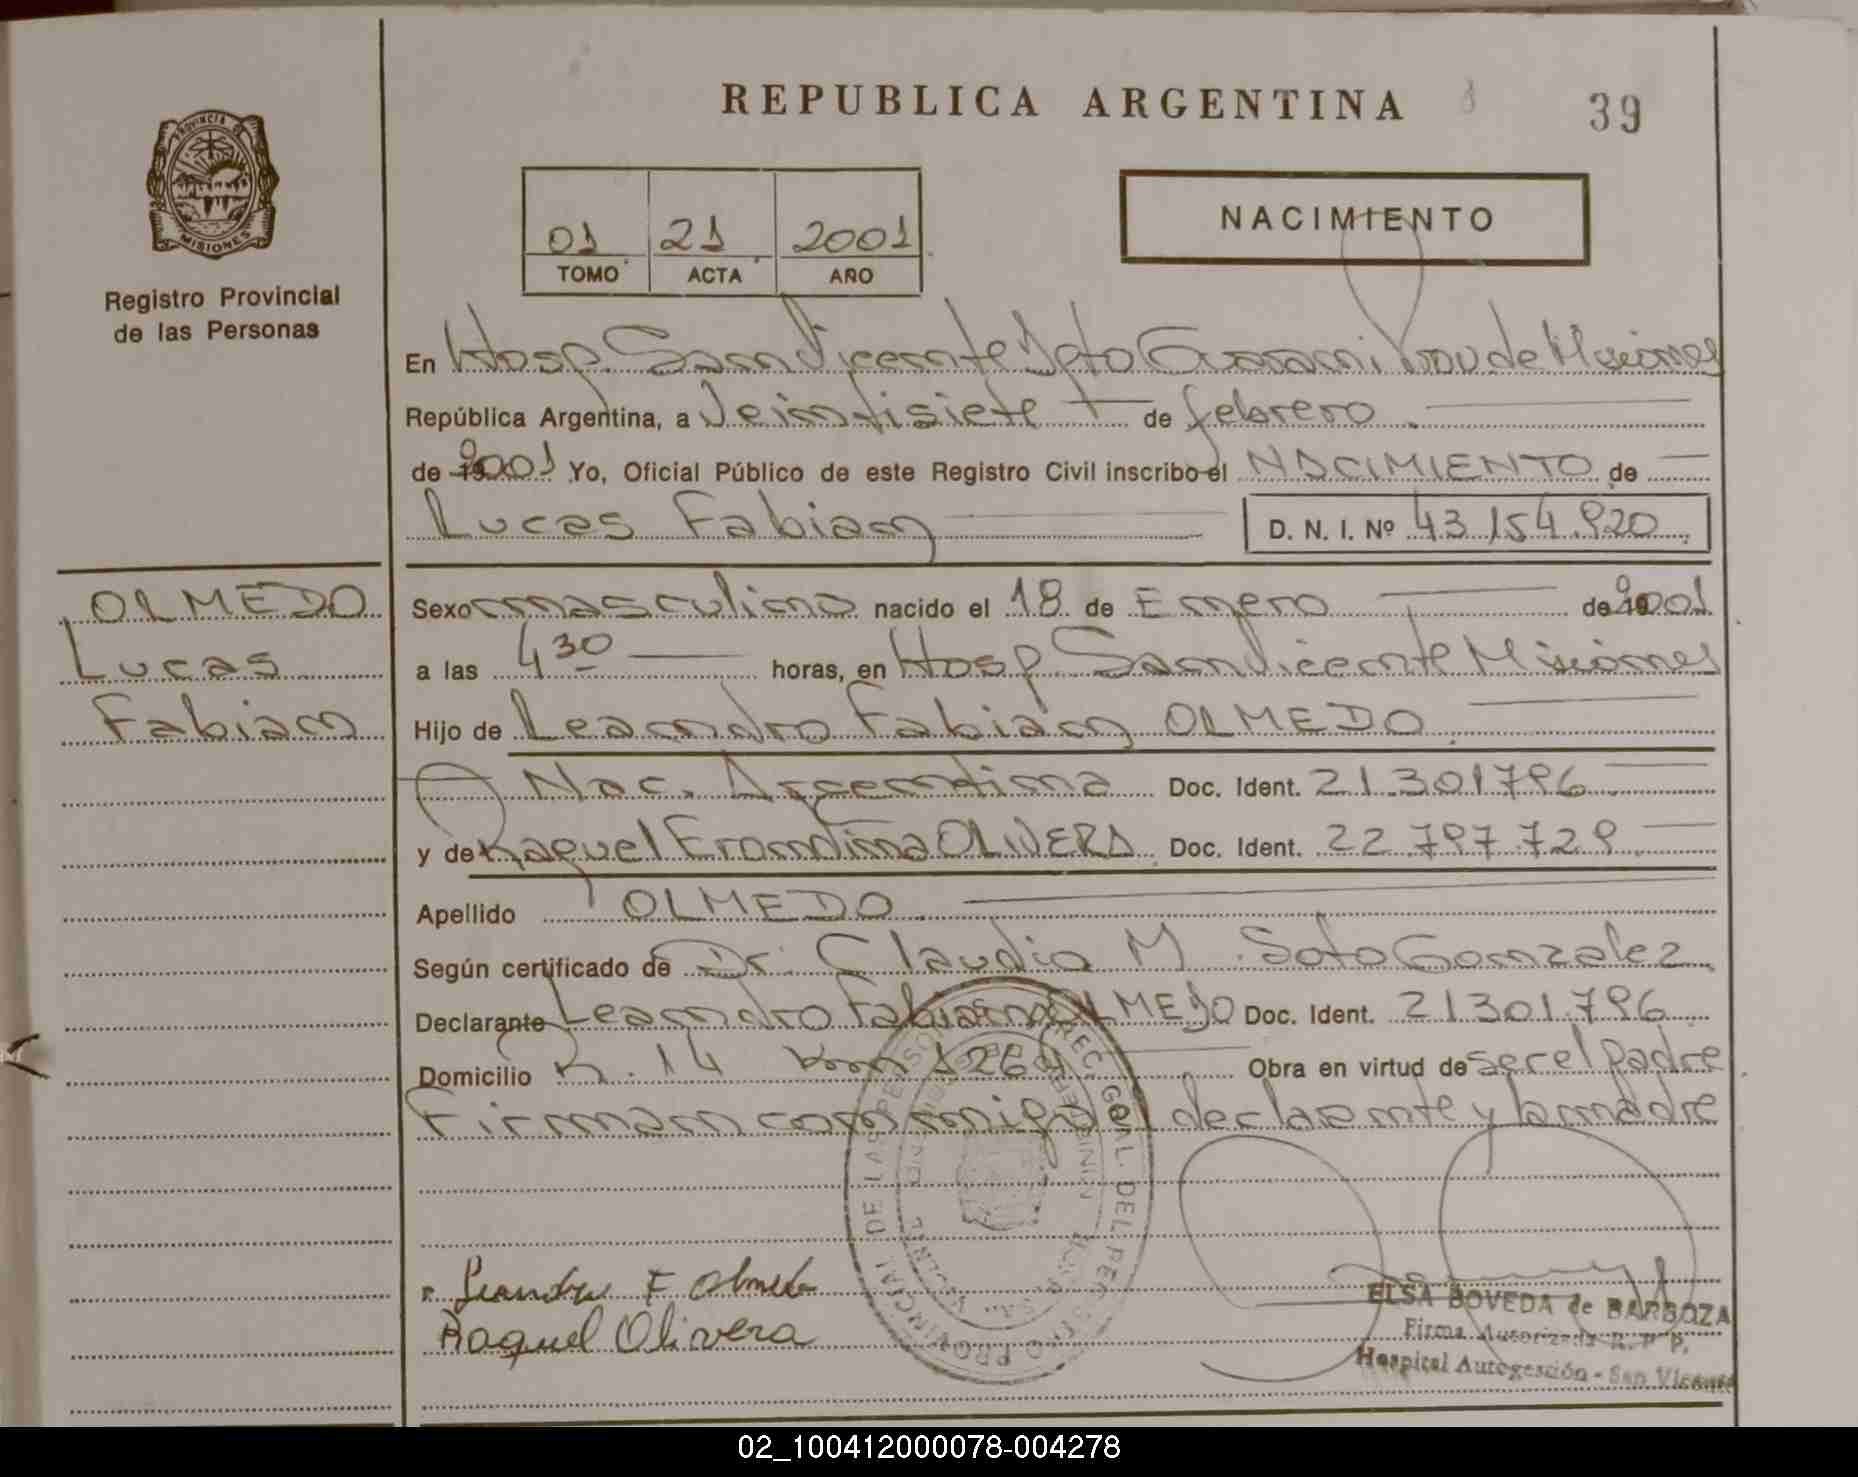 REPUBLICA ARGENTINA
39
PROVINCIA DE
MISIONES
Registro Provincial
de las Personas
01 21 2001
TOMO ACTA AÑO
NACIMIENTO
En Hosp. San Vicente Dpto Guarani Prov de Misiones
República Argentina, a Veintisiete de febrero
de 2001 Yo, Oficial Público de este Registro Civil inscribo el NACIMIENTO de
Lucas Fabian
D. N. I. Nº 43.154.920
OLMEDO
Lucas
Fabian
Sexo masculino nacido el 18 de Enero de 2001
a las 4 30 horas, en Hosp. San Vicente Misiones
Hijo de Leandro Fabián OLMEDO
Nac. Argentina Doc. Ident. 21.301796
y de Raquel OLIVERA Doc. Ident. 22.797.729
Apellido OLMEDO
Según certificado de Dr. Claudio M. Soto Gonzalez
Declarante Leandro Fabian OLMEDO Doc. Ident. 21301.796
Domicilio R. 14 Km 1264 Obra en virtud de ser el padre
Firman conmigo el declarante y la madre
Leandro F Olmedo
Raquel Olivera
ELSA BOVEDA de BARBOZA
Firma Autorizada R. P. P.
Hospital Autogestión - San Vicente
02_100412000078-004278